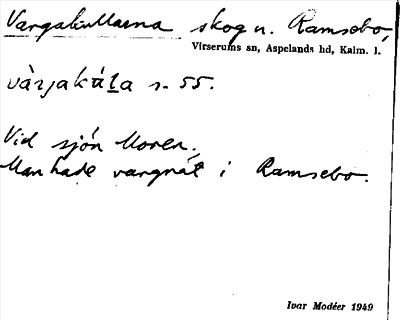 Vargakullarna skog u. Ramsebo,
Virserums sn, Aspelands hd, Kalm. l.
s. 55.
Vid sjön Moren.
Man hade vargnät i Ramsebo.
Ivar Modéer 1949